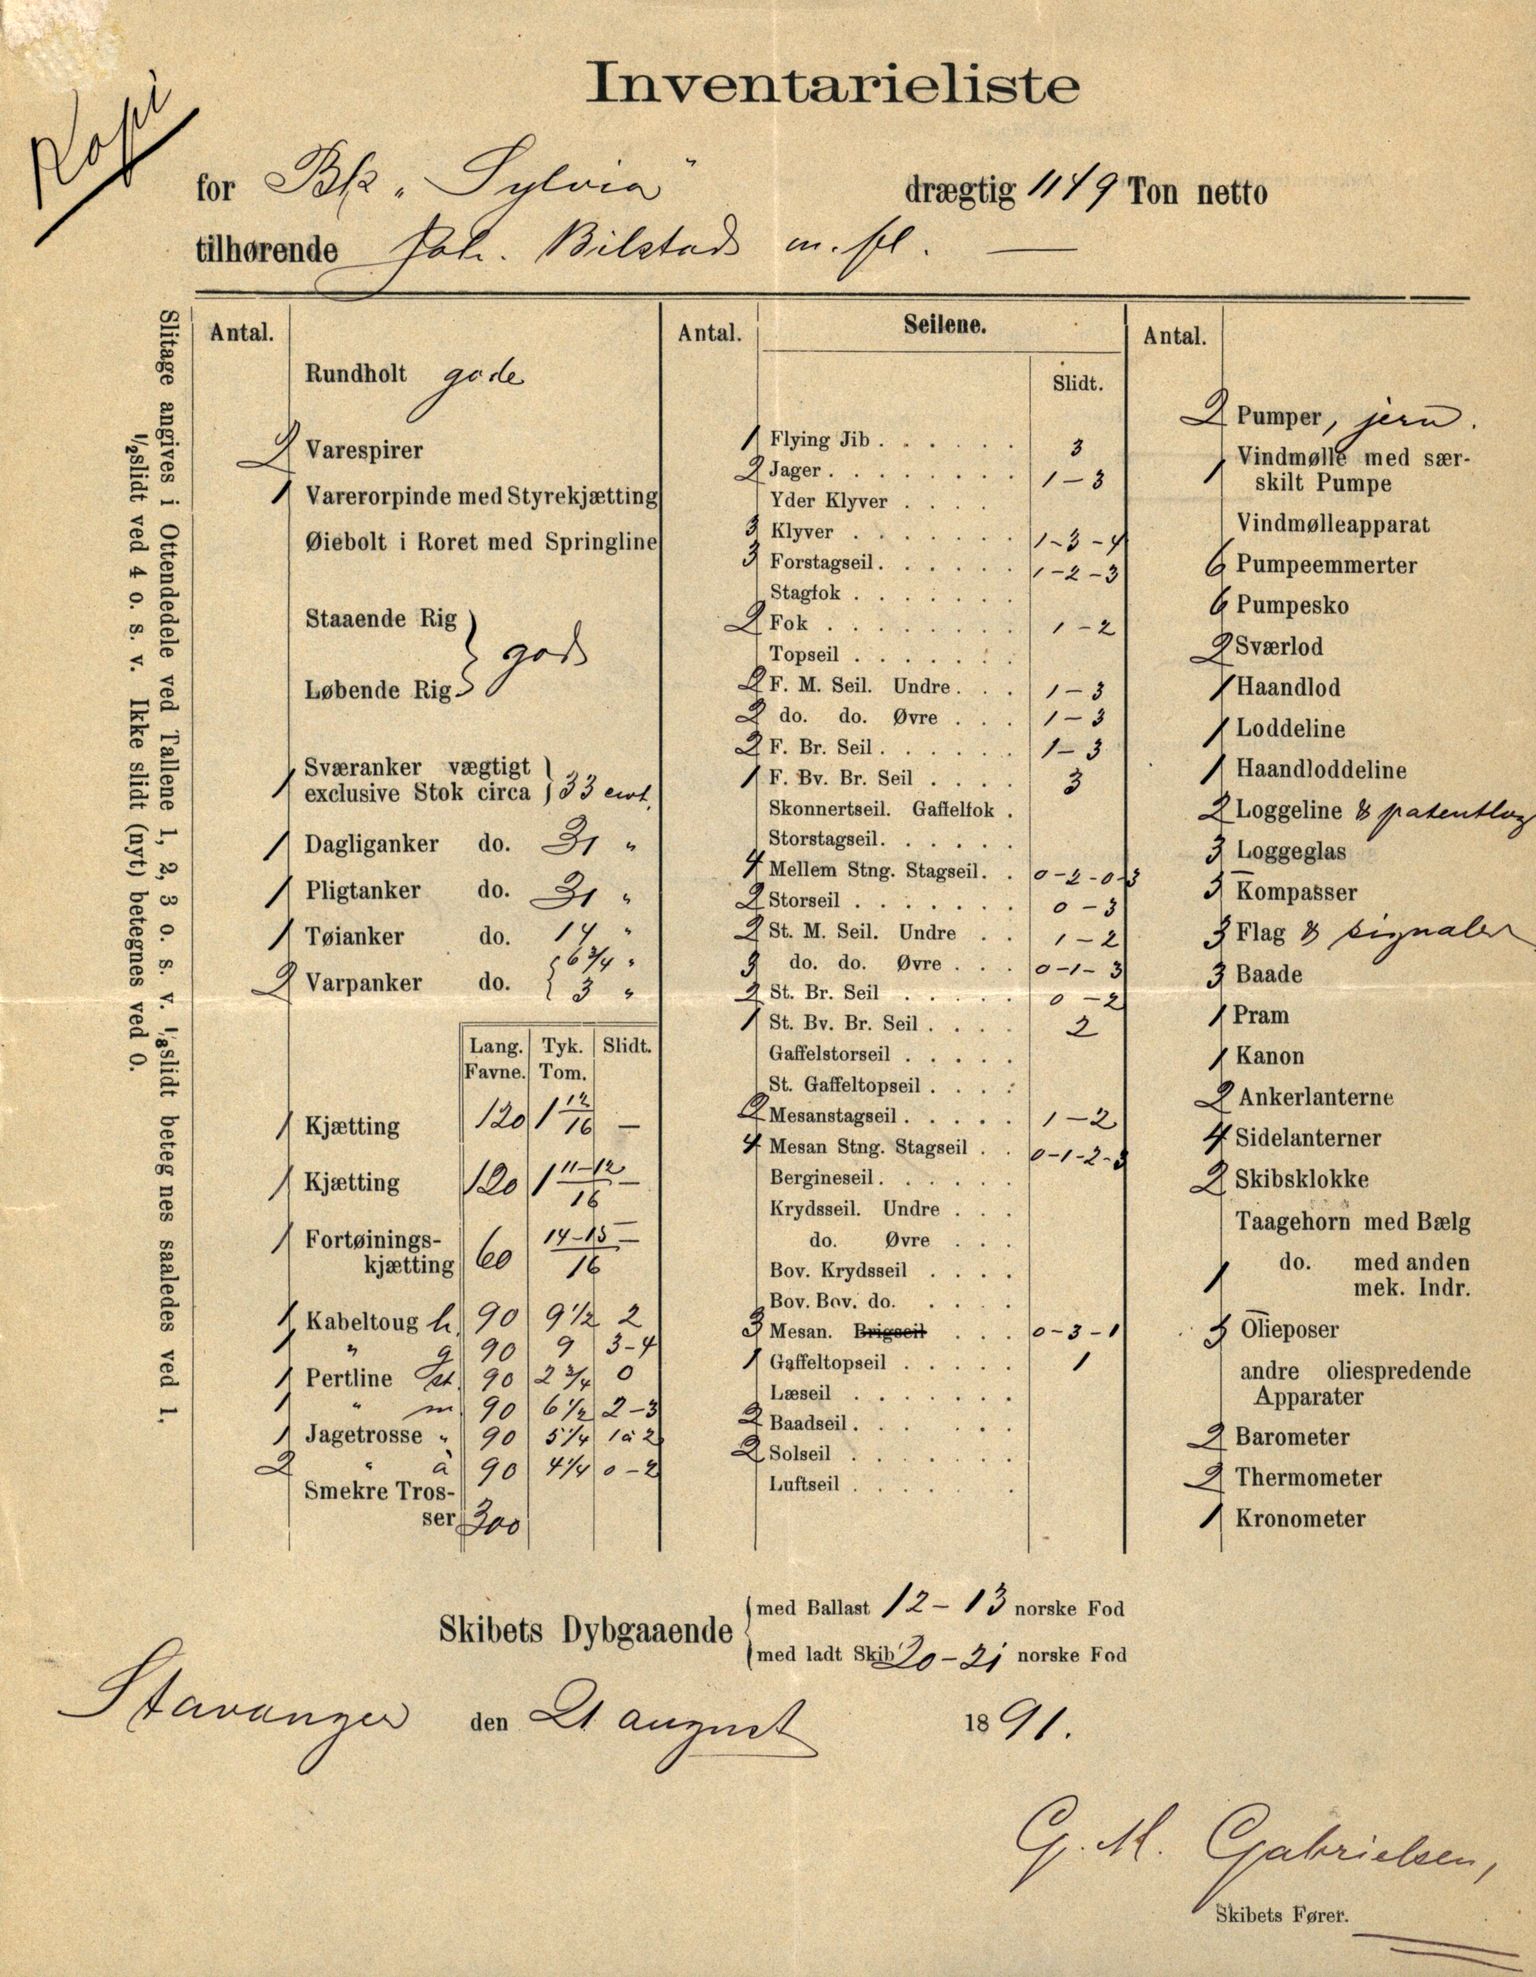 Kopi
Inventarieliste
for Bk „Sylvia" drægtig 1149 Ton netto
tilhørende Joh. Bilstad m. fl. —
Slitage angives i Ottendedele ved Tallene 1, 2, 3 o. s. v. 1/8slidt beteg nes saaledes ved 1,
1/2slidt ved 4 o. s. v. Ikke slidt (nyt) betegnes ved 0.
Antal.
Rundholt gode
2 Varespirer
1 Varerorpinde med Styrekjætting
Øiebolt i Roret med Springline
Staaende Rig } god
Løbende Rig
1 Sværanker vægtigt
exclusive Stok circa } 33 cwt.
1 Dagliganker do. 31 "
1 Pligtanker do. 31 "
1 Tøianker do. 14 "
2 Varpanker do. { 6 3/4 "
3 "
Lang. Favne. Tyk. Tom. Slidt.
1 Kjætting 120 1 12/16 —
1 Kjætting 120 1 11-12/16 —
1 Fortøinings-
kjætting 60 14-15/16 —
1 Kabeltoug h. 90 9 1/2 2
1 " g 90 9 3-4
1 Pertline st. 90 2 3/4 0
1 " m 90 6 1/2 2-3
1 Jagetrosse " 90 5 1/4 1 à 2
2 " à 90 4 1/4 0-2
Smekre Tros-
ser 300
Antal. Seilene.
Slidt.
1 Flying Jib . . . . . 3
2 Jager . . . . . . . 1-3
Yder Klyver . . . .
3 Klyver . . . . . . 1-3-4
3 Forstagseil . . . . . 1-2-3
Stagfok . . . . . .
2 Fok . . . . . . . 1-2
Topseil . . . . . .
2 F. M. Seil. Undre . . . 1-3
2 do. do. Øvre . . . 1-3
2 F. Br. Seil . . . . . 1-3
1 F. Bv. Br. Seil . . . . 3
Skonnertseil. Gaffelfok .
Storstagseil . . . . .
4 Mellem Stng. Stagseil . . 0-2-0-3
2 Storseil . . . . . . 0-3
2 St. M. Seil. Undre . . 1-2
3 do. do. Øvre . . . 0-1-3
2 St. Br. Seil . . . . . 0-2
1 St. Bv. Br. Seil . . . . 2
Gaffelstorseil . . . . .
St. Gaffeltopseil . . . .
2 Mesanstagseil . . . . . 1-2
4 Mesan Stng. Stagseil . . 0-1-2-3
Bergineseil . . . . . .
Krydsseil. Undre . . .
do. Øvre . . .
Bov. Krydsseil . . . .
Bov. Bov. do. . . . .
3 Mesan. Brigseil . . . 0-3-1
1 Gaffeltopseil . . . . . 1
Læseil . . . . . . .
2 Baadseil . . . . . .
2 Solseil . . . . . . .
Luftseil . . . . . .
Antal.
2 Pumper, jern.
1 Vindmølle med sær-
skilt Pumpe
Vindmølleapparat
6 Pumpeemmerter
6 Pumpesko
2 Sværlod
1 Haandlod
1 Loddeline
1 Haandloddeline
2 Loggeline & patentlog
3 Loggeglas
3 Kompasser
3 Flag & signaler
3 Baade
1 Pram
1 Kanon
2 Ankerlanterne
4 Sidelanterner
2 Skibsklokke
Taagehorn med Bælg
1 do. med anden
mek. Indr.
3 Olieposer
andre oliespredende
Apparater
2 Barometer
2 Thermometer
1 Kronometer
Skibets Dybgaaende
med Ballast 12-13 norske Fod
med ladt Skib 20-21 norske Fod
Stavanger den 21 august 1891.
G. M. Gabrielsen,
Skibets Fører.